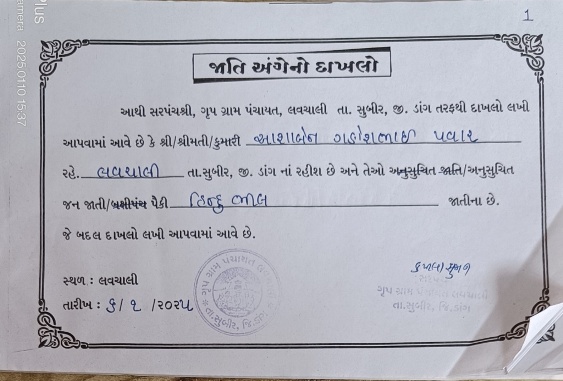 1
જાતિ અંગેનો દાખલો
આથી સરપંચશ્રી, ગૃપ ગ્રામ પંચાયત, લવચાલી તા. સુબીર, જી. ડાંગ તરફથી દાખલો લખી
આપવામાં આવે છે કે શ્રી/શ્રીમતી/કુમારી આશાબેન ગણેશભાઈ પવાર
રહે. લવચાલી તા.સુબીર, જી. ડાંગ નાં રહીશ છે અને તેઓ અનુસુચિત જાતિ/અનુસુચિત
જન જાતી/બક્ષીપંચ પૈકી હિન્દુ ભીલ જાતીના છે.
જે બદલ દાખલો લખી આપવામાં આવે છે.
સ્થળ : લવચાલી
તારીખ : ૬/ ૧ /૨૦૨૫
સરપંચ
ગૃપ ગ્રામ પંચાયત લવચાલી
તા.સુબીર, જિ.ડાંગ
ગૃપ ગ્રામ પંચાયત લવચાલી
તા.સુબીર, જિ.ડાંગ
Plus
amera 20250110 15:37